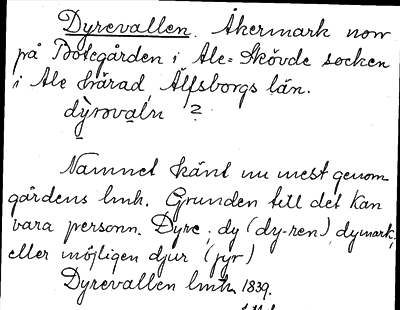 Dyrevallen. Åkermark norr
på Botegården i Ale-Skövde socken
i Ale härad, Älfsborgs län.
dỳrovaln 2
Namnet känt nu mest genom
gårdens lmh. Grunden till det kan
vara personn. Dyre, dy (dy-ren), dymark,
eller möjligen djur (jyr)
Dyrevallen lmh. 1839.